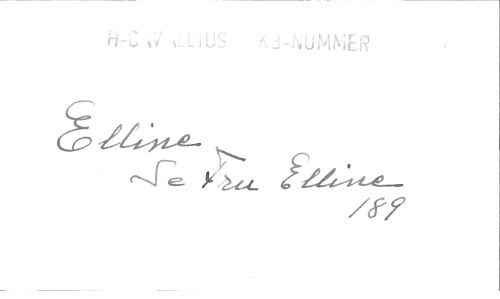 H-CAVALLIUS KB-NUMMER
Elline
Se Fru Elline
189